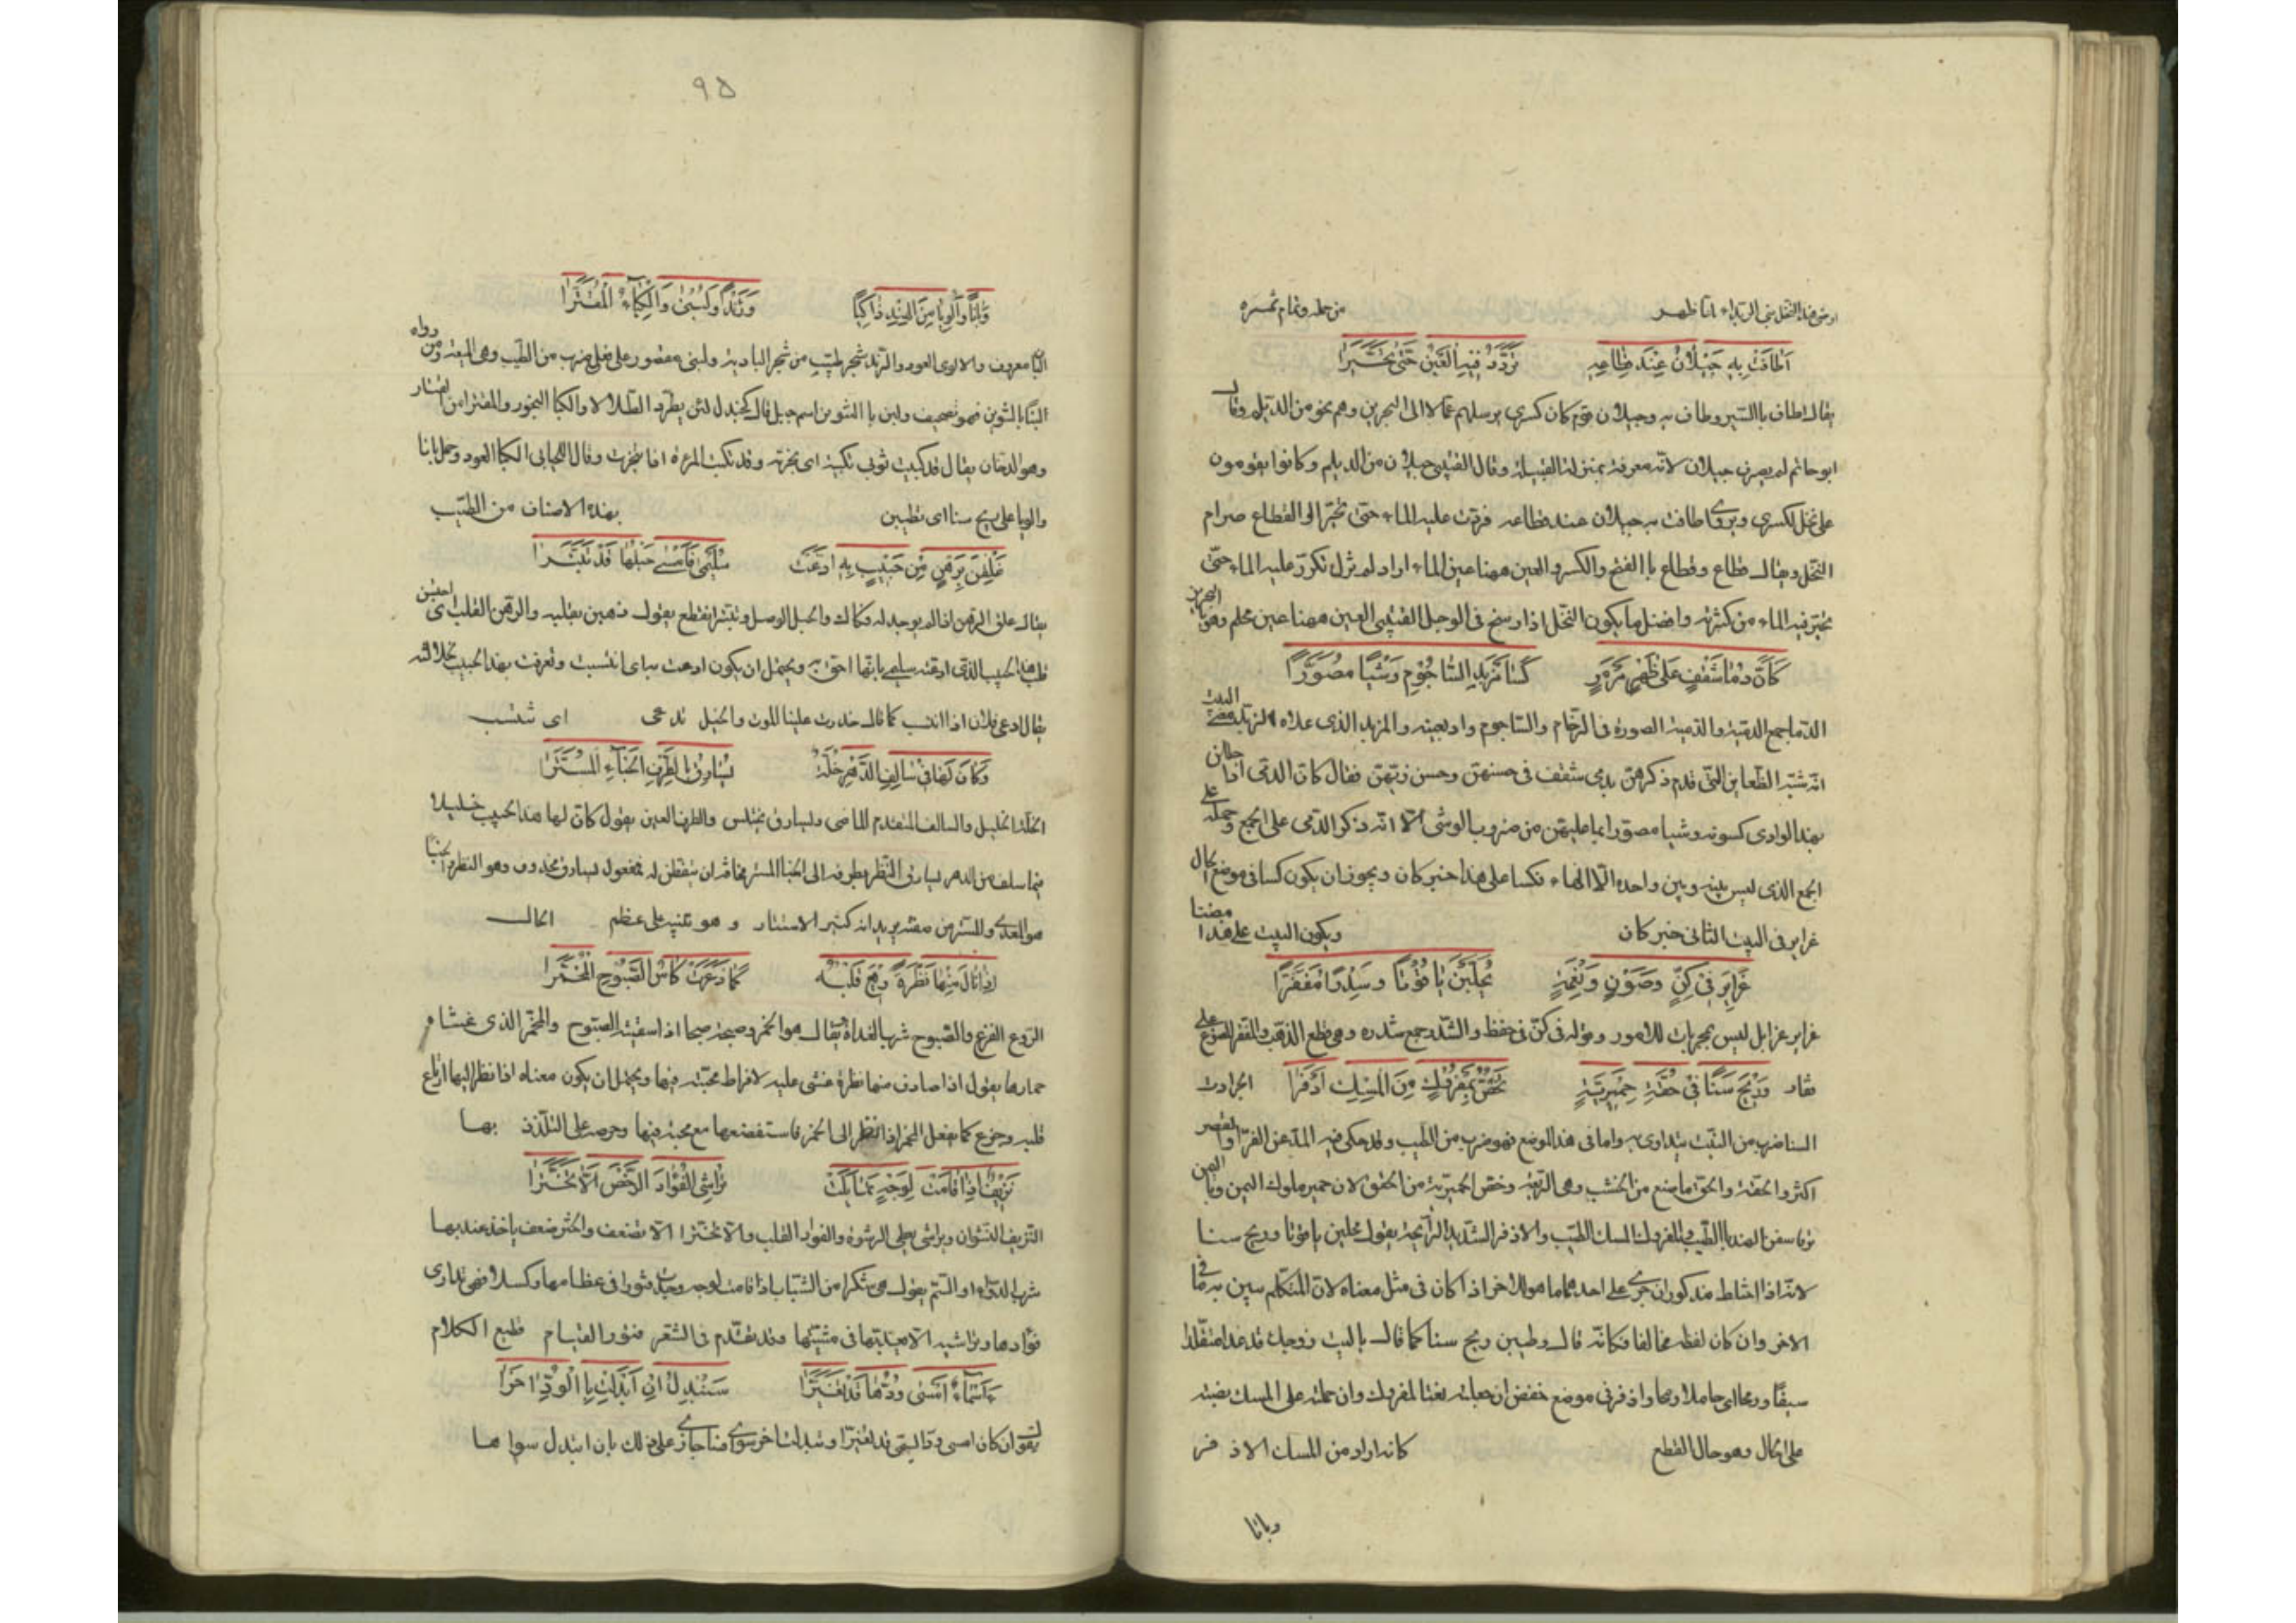 اطافت به جيلان عند قطاعه تردد فيه العين حتى تحيرا
يقال اطاف بالشير وطاف به وجيلان قوم كان كسرى يرسلهم عمالا الى البحرين وهم نحو من الديلم وقال
ابو حاتم لم يصرف جيلان لانه معرفة بمنزلة القبيلة وقال القتيبى جيلان من الديلم وكانوا يقومون
على نخل لكسرى ويروى اطافت به جيلان عند قطاعه فردت عليه الماء حتى تحير والقطاع صرام
النخل ويقال قطاع وقطاع باالفتح والكسر والعين ههنا عين الماء اراد لم تزل تكرر عليه الماء حتى
تحير فيه الماء من كثرته وافضل ما يكون النخل اذا رسخ فى الوحل القتيبى العين ههنا عين محلم وهى بالبحرين
كان دما شقف على ظهر مرمر كسا مزبد الساجوم وشيا مصورا
الدما جمع الدمية والدمية الصورة فى الرخام والساجوم واد بعينه والمزبد الذى علاه الزبد معنى البيت
انه شبه الظعاين التى قدم ذكرهن بدمى شقف فى حسنهن وحسن زيهن فقال كان الدمى اذا
بهذا الوادى كسونه وشيا مصورا بما عليهن من ضروب الوشى الا انه ذكر الدمى على الجمع وحمله على
الجمع الذى ليس بينه وبين واحده الا الهاء فكسا على هذا خبر كان ويجوز ان يكون كسا فى موضع الحال
غراير فى البيت الثانى خبر كان ويكون البيت على هذا مضمنا
غراير فى كن وصون ونعمة يحلين ياقوتا وشذرا مفقرا
غراير غوافل ليس بمجربات للامور وقوله فى كن فى حفظ والشذر جمع شذره وهى قطع الذهب والمفقر المصوغ على
فقار وريح سنا فى حقة حميرية تخص بمفروك من المسك اذفرا الجرادة
السنا ضرب من النبت يتداوى به واما فى هذا الموضع فهو ضرب من الطيب وقد حكى فيه المد عن الفرا والقصر
اكثر والحقة والحق ما صنع من الخشب وهى الربعة وخص الحميرية من الحقق لان حمير ملوك اليمن وباليمن
ترفا سفن الهند باالطيب والمفروك المسك الطيب والاذفر الشديد الرايحة يقول يحلين ياقوتا وريح سنا
لانه اذا اشاط مذكوران جرى على احدهما ما هو للاخر اذا كان فى مثل معناه لان المتكلم يبين به ما فى
الاخر وان كان لفظه مخالفا فكانه قال وطيبن ريح سنا كما قال باليت زوجك قد غدا متقلدا
سيفا ورمحا اى حاملا رمحا واذفر فى موضع خفض ان جعلته نعتا لمفروك وان حملته على المسك نصبته
على الحال وهو حال القطع كانه اراد من المسك الاذفر
وبانا
٩٥
وبانا والويا من الهند ذاكيا ورندا ولبنى والكباء المقترا
البان معروف والالوى العود والرند شجر طيب من شجر البادية ولبنى مقصور على فعلى ضرب من الطيب وهى الميعة ومن رواه
وهو الدخان يقال قد كبيت ثوبى تكبية اى بخرته وقد تكبت المراة اذا تبخرت وقال اللحيانى الكبا العود وحمل بانا
والويا على ريح سنا اى تطيبن بهذه الاصناف من الطيب
غلقن برهن من حبيب به ادعت سليمى فامسى حبلها قد تبترا
يقال غلق الرهن اذا لم يوجد له فكاك والحبل الوصل وتبتر انقطع يقول ذهبن بقلبه والرهن القلب اى احتبسن
قلب هذا الحبيب الذى ادعته سليمى بانها احق به ويحتمل ان يكون ادعت به اى انتسبت وتعرفت بهذا الحبيب لجلالته
يقال ادعى فلان اذا انتسب كما قال حذرت علينا الموت والخيل تدعى اى تنتسب
وكان لها فى سالف الدهر خلة يسارق باالطرف الخباء المسترا
الخلة الخليل والسالف المتقدم الماضى ويسارق يختلس والطرف العين يقول كان لها هذا الحبيب خليلا
فيما سلف من الدهر يسارق النظر بطرفه الى الخبا المستر مخافة ان يتفطن له فمفعول يسارق محذوف وهو النظر والخبا
هو المعدى والمستر من صفته يريد انه كثير الاستتار وهو تنبيه على عظم الحال
اذا نال منها نظرة ريع قلبه كما ذعرت كاس الصبوح المخمرا
الروع الفزع والصبوح شرب الغداة يقال هو الخمر وصبحته صبحا اذا سقيته الصبوح والمخمر الذى غشاه
خمارها يقول اذا صادف منها نظرة غشى عليه لافراط محبته فيها ويحتمل ان يكون معناه اذا نظر اليها ارتاع
قلبه وجزع كما يفعل المخمر اذا نظر الى الخمر فاستفضعها مع محبته فيها وحرصه على التلذذ بها
نزيف اذا قامت لوجه تمايلت تراشى الفؤاد الرخص الا تخترا
النزيف النشوان وتراشى يعطى الرشوة والفؤاد القلب والا تخترا الا تضعف والختر ضعف ياخذ عند بها
شرب الدواء او السم يقول هى سكرا من الشباب اذا قامت لوجه وجدت فتورا فى عظامها وكسلا فهى تدارى
فؤادها وتراشيه الا يعذبها فى مشيتها وقد تقدم فى الشعر فتور القيام قطيع الكلام
ءاسماء امسى ودها قد تغيرا سنبدل ان ابدلت باالود اخرا
يقول ان كان امسى ودها لبقى قد تغيرا وتبدلت اخر سوى منا جاز على ذلك بان ابتدل سواها